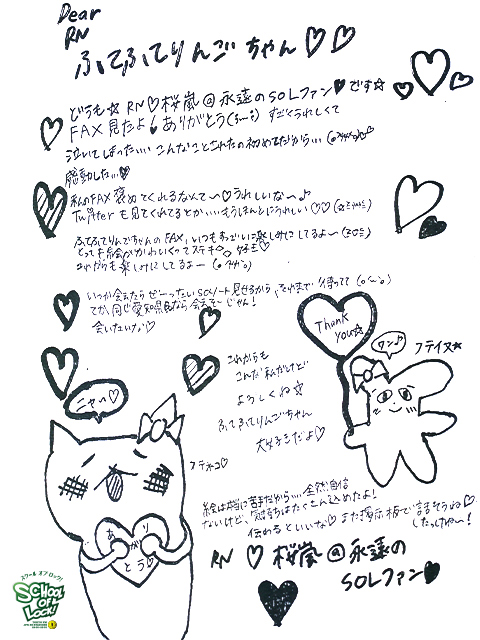 Dear
RN
ふてふてりんごちゃん♡♡
どうも☆ RN♡桜嵐@永遠のSOLファン♥です☆
FAX見たよ! ありがとう すごくうれしくて
泣いてしまった…… こんなことされたの初めてだから…
感動した…♡
私のFAX褒めてくれるなんて〜♡うれしいな〜♪
Twitterも見てくれてるとか…… もうほんとにうれしい♡♡
ふてふてりんごちゃんのFAX、いつもすっごい楽しみにしてるよ〜
とっても絵がかわいくってステキ
これからも楽しみにしてるよー
いつか会えたらぜーったいSOLノート見せるから、それまで待ってて
てか、同じ愛知県民なら会えるじゃん!
会いたいな♡
Thank
You☆
ワン♪
フテイヌ☆
ニャ〜♡
これからも
こんな私だけど
よろしくね☆
ふてふてりんごちゃん
大好きだよ♡
フテネコ♡
ありがとう♡
絵は本当に苦手だから…… 全然自信
ないけど、気持ちはたくさん込めたよ!
伝わるといいな♡ また掲示板で話そうね♡
RN ♡ 桜嵐@永遠の
SOLファン♥
スクール オブ ロック!
SCHOOL
OF
LOCK!